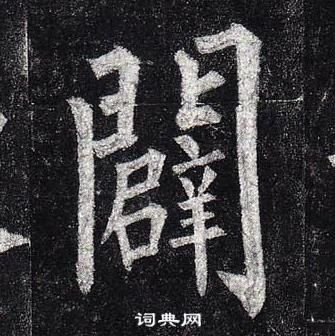 闢
词典网